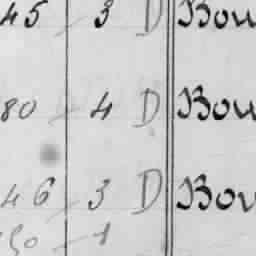 45 3 D Bou
80 4 D Bou
46 3 D Bou
50 1